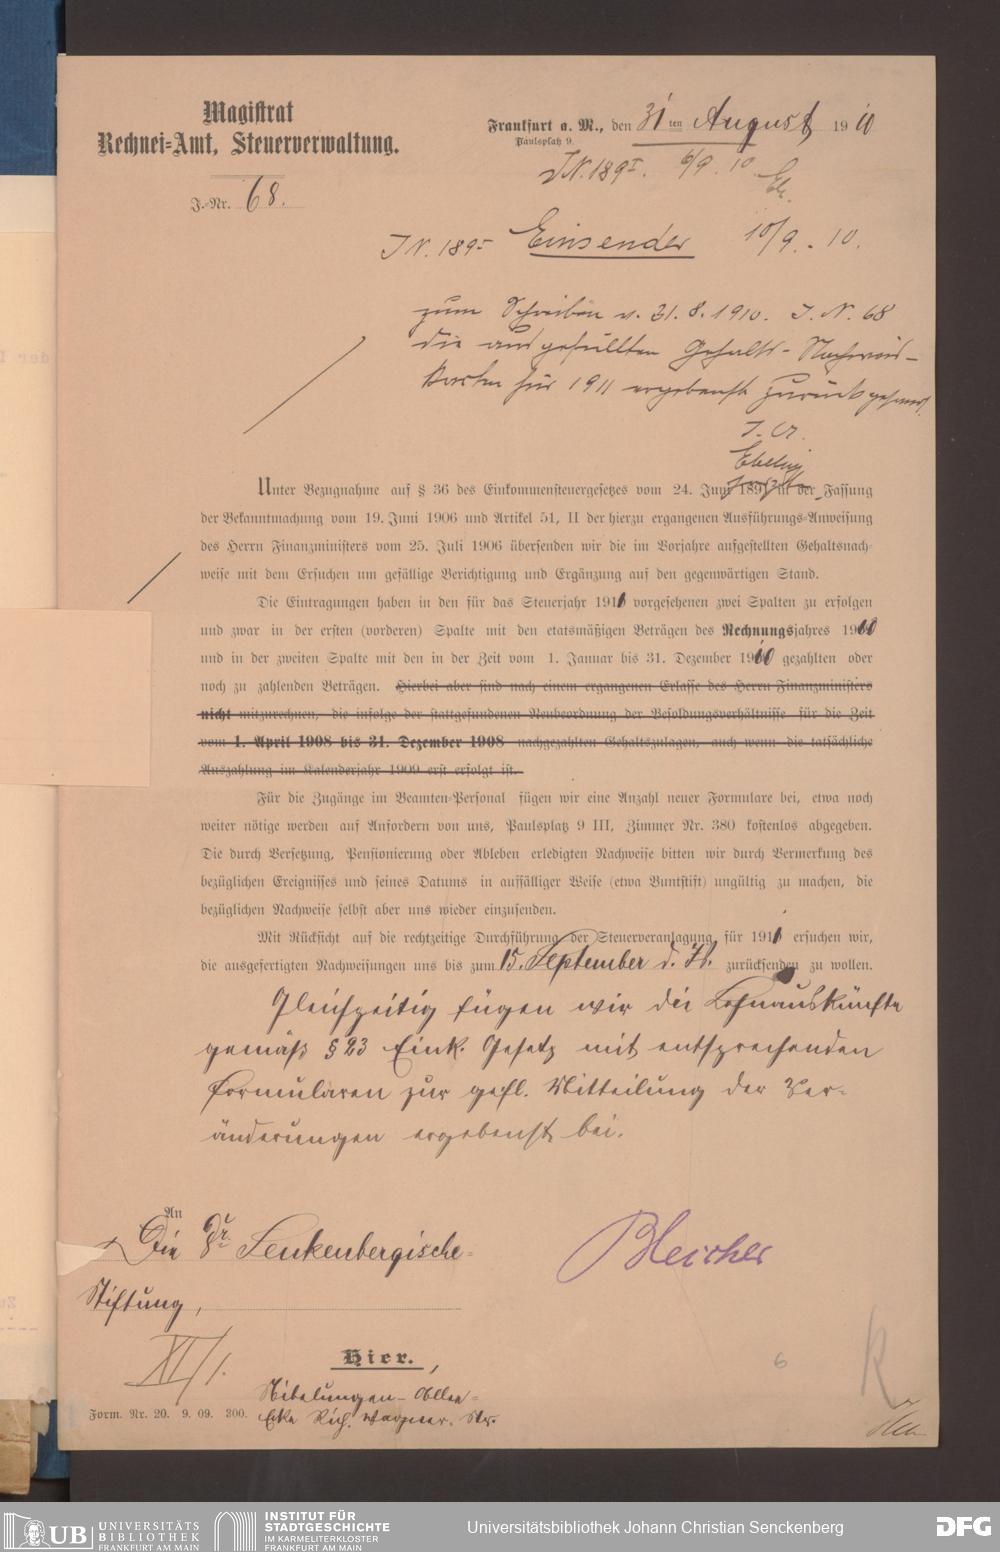 Magistrat
Rechnei-Amt, Steuerverwaltung.
J.-Nr. 68.
Frankfurt a. M., den 31ten August 1910
Paulsplatz 9.
J.N. 189I. 6/9. 10
Eb.
J.N. 189I Einsender 10/9. 10.
zum Schreiben v. 31. 8. 1910. J. N. 68
die ausgefüllten Gehalts-Nachweis-
karten für 1911 ergebenst zurückgesandt
J. A.
Ebeling
Unter Bezugnahme auf § 36 des Einkommensteuergesetzes vom 24. Juni 1891 in der Fassung
der Bekanntmachung vom 19. Juni 1906 und Artikel 51, II der hierzu ergangenen Ausführungs-Anweisung
des Herrn Finanzministers vom 25. Juli 1906 übersenden wir die im Vorjahre aufgestellten Gehaltsnach-
weise mit dem Ersuchen um gefällige Berichtigung und Ergänzung auf den gegenwärtigen Stand.
Die Eintragungen haben in den für das Steuerjahr 1911 vorgesehenen zwei Spalten zu erfolgen
und zwar in der ersten (vorderen) Spalte mit den etatsmäßigen Beträgen des Rechnungsjahres 1910
und in der zweiten Spalte mit den in der Zeit vom 1. Januar bis 31. Dezember 1910 gezahlten oder
noch zu zahlenden Beträgen. Hierbei aber sind nach einem ergangenen Erlasse des Herrn Finanzministers
nicht mitzurechnen, die infolge der stattgefundenen Neubeordnung der Besoldungsverhältnisse für die Zeit
vom 1. April 1908 bis 31. Dezember 1908 nachgezahlten Gehaltszulagen, auch wenn die tatsächliche
Auszahlung im Kalenderjahr 1909 erst erfolgt ist.
Für die Zugänge im Beamten-Personal fügen wir eine Anzahl neuer Formulare bei, etwa noch
weiter nötige werden auf Anfordern von uns, Paulsplatz 9 III, Zimmer Nr. 380 kostenlos abgegeben.
Die durch Versetzung, Pensionierung oder Ableben erledigten Nachweise bitten wir durch Vermerkung des
bezüglichen Ereignisses und seines Datums in auffälliger Weise (etwa Buntstift) ungültig zu machen, die
bezüglichen Nachweise selbst aber uns wieder einzusenden.
Mit Rücksicht auf die rechtzeitige Durchführung der Steuerveranlagung für 1911 ersuchen wir,
die ausgefertigten Nachweisungen uns bis zum 15. September d. Js. zurücksenden zu wollen.
Gleichzeitig fügen wir die Lohnauskünfte
gemäß § 23 Eink. Gesetz mit entsprechenden
Formularen zur gefl. Mitteilung der Ver-
änderungen ergebenst bei.
An
Die Dr. Senkenbergische-
Stiftung,
Bleicher
XI/1.
Hier.,
Nibelungen-Allee-
Ecke Rich. Wagner. Str.
Form. Nr. 20. 9. 09. 300.
6
K
UB UNIVERSITÄTS
BIBLIOTHEK
FRANKFURT AM MAIN
INSTITUT FÜR
STADTGESCHICHTE
IM KARMELITERKLOSTER
FRANKFURT AM MAIN
Universitätsbibliothek Johann Christian Senckenberg
DFG